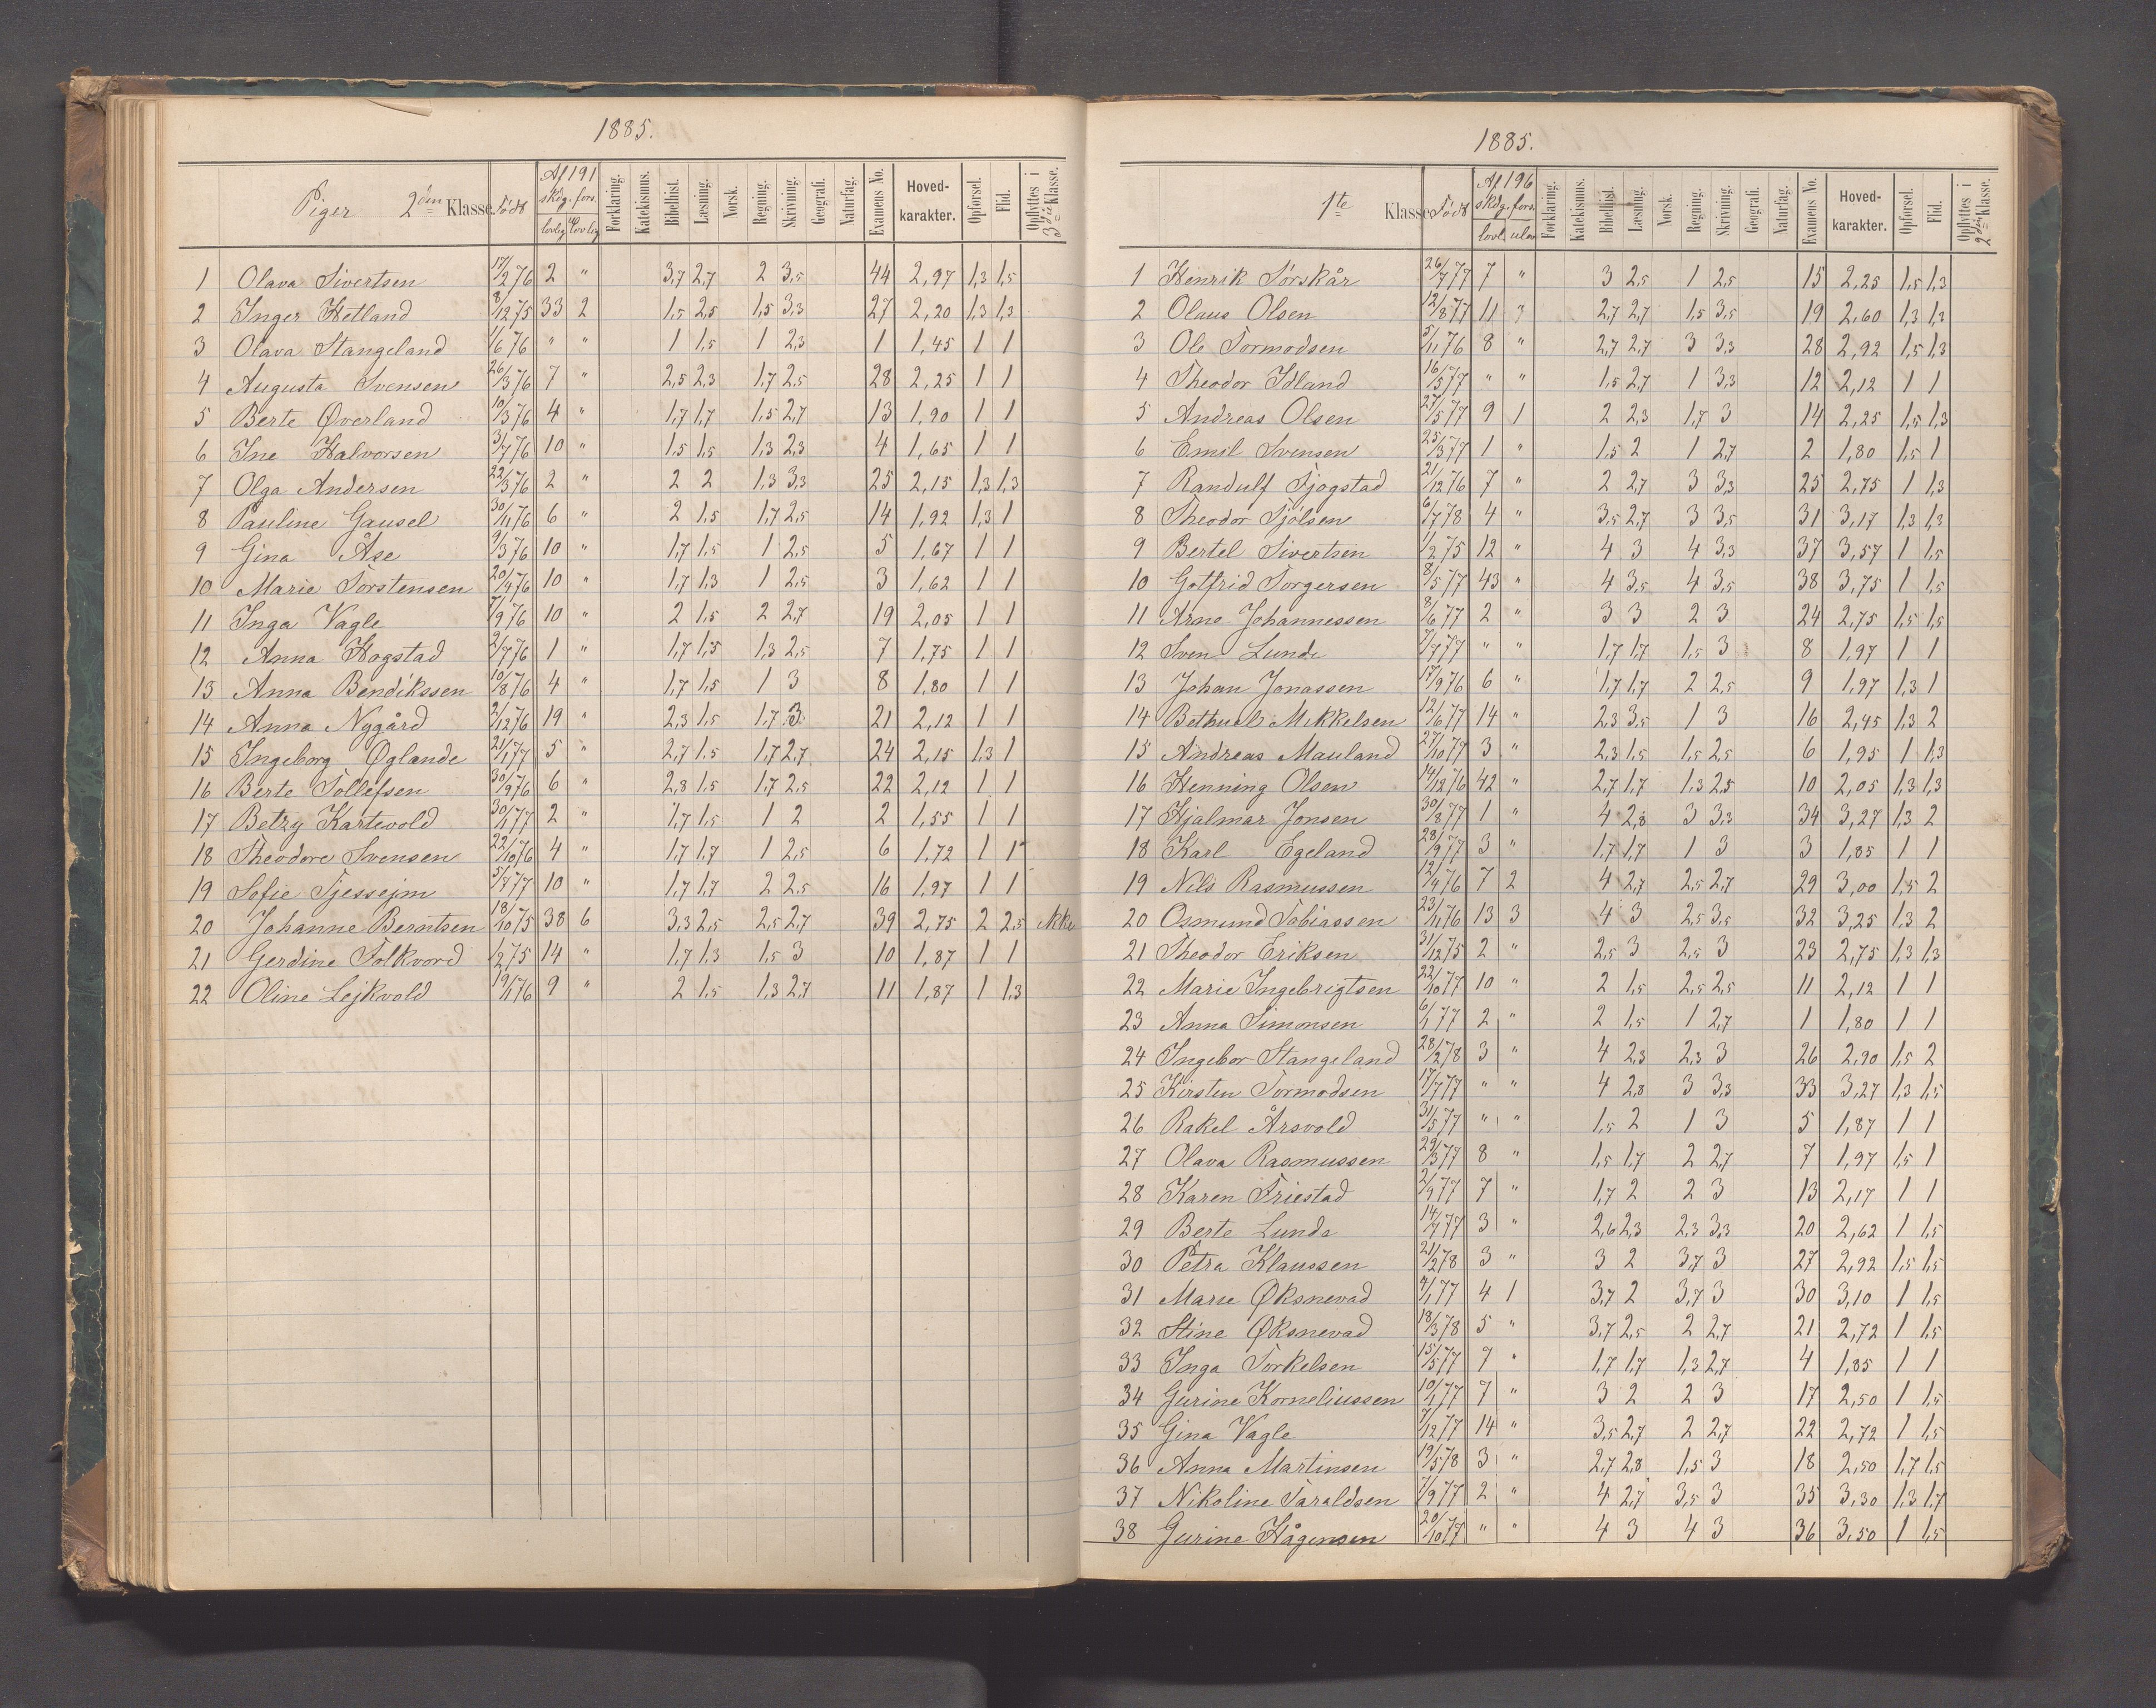 1885.
Piger 2den Klasse. Född Af 191 skdg. fors. lovlig Forklaring. Katekismus. Bibelhist. Læsning. Norsk. Regning. Skrivning. Geografi. Naturfag. Examens No. Hoved-karakter. Opførsel. Flid. Opflyttes i 3die Klasse.
1 Olava Sivertsen 17/2 76 2 " 3,7 2,7 2 3,5 44 2,97 1,3 1,5
2 Inger Hetland 8/12 75 33 2 1,5 2,5 1,5 3,3 27 2,20 1,3 1,3
3 Olava Stangeland 1/6 76 " " 1 1,5 1 2,3 1 1,45 1 1
4 Augusta Svensen 26/3 76 7 " 2,5 2,3 1,7 2,5 28 2,25 1 1
5 Berte Øverland 10/3 76 4 " 1,7 1,7 1,5 2,7 13 1,90 1 1
6 Ine Halvorsen 3/7 76 10 " 1,5 1,5 1,3 2,3 4 1,65 1 1
7 Olga Andersen 22/3 76 2 " 2 2 1,3 3,3 25 2,15 1,3 1,3
8 Pauline Gausel 30/11 76 6 " 2 1,5 1,7 2,5 14 1,92 1,3 1
9 Gina Åse 9/3 76 10 " 1,7 1,5 1 2,5 5 1,67 1 1
10 Marie Torstensen 20/4 76 10 " 1,7 1,3 1 2,5 3 1,62 1 1
11 Inga Vagle 7/9 76 10 " 2 1,5 2 2,7 19 2,05 1 1
12 Anna Hogstad 2/7 76 1 " 1,7 1,5 1,3 2,5 7 1,75 1 1
13 Anna Bendikssen 10/8 76 4 " 1,7 1,5 1 3 8 1,80 1 1
14 Anna Nygård 2/12 76 19 " 2,3 1,5 1,7 3 21 2,12 1 1
15 Ingeborg Øglande 21/1 77 5 " 2,7 1,5 1,7 2,7 24 2,15 1,3 1
16 Berte Tollefsen 30/9 76 6 " 2,8 1,5 1,7 2,5 22 2,12 1 1
17 Betzy Kartevold 30/1 77 2 " 1,7 1,5 1 2 2 1,55 1 1
18 Theodore Svensen 22/10 76 4 " 1,7 1,7 1 2,5 6 1,72 1 1
19 Sofie Tjessejm 77 10 " 1,7 1,7 2 2,5 16 1,97 1 1
20 Johanne Berntsen 18/10 75 38 6 3,3 2,5 2,5 2,7 39 2,75 2 2,5 ikke
21 Gerdine Folkvord 1/2 75 14 " 1,7 1,3 1,5 3 10 1,87 1 1
22 Oline Lejkvold 19/1 76 9 " 2 1,5 1,3 2,7 11 1,87 1 1,3
1885.
1te Klasse. Född Af 196 skdg. fors. lovl. ulov Forklaring. Katekismus. Bibelhist. Læsning. Norsk. Regning. Skrivning. Geografi. Naturfag. Examens No. Hoved-karakter. Opførsel. Flid. Opflyttes i 2den Klasse.
1 Henrik Sørskår 26/7 77 7 " 3 2,5 1 2,5 15 2,25 1,5 1,3
2 Olaus Olsen 12/8 77 11 3 2,7 2,7 1,5 3,5 19 2,60 1,3 1,3
3 Ole Tormodsen 5/11 76 8 " 2,7 2,7 3 3,3 28 2,92 1,5 1,3
4 Theodor Idland 16/5 77 " " 1,5 2,7 1 3,3 12 2,12 1 1
5 Andreas Olsen 27/5 77 9 1 2 2,3 1,7 3 14 2,25 1,5 1,3
6 Emil Svensen 25/3 77 1 " 1,5 2 1 2,7 2 1,80 1,5 1
7 Randulf Tjogstad 21/12 76 7 " 2 2,7 3 3,3 25 2,75 1 1,3
8 Theodor Tjølsen 6/7 78 4 " 3,5 2,7 3 3,5 31 3,17 1,3 1,3
9 Bertel Sivertsen 11/2 75 12 " 4 3 4 3,3 37 3,57 1 1,5
10 Gotfrid Torgersen 8/5 77 43 " 4 3,5 4 3,5 38 3,75 1 1,5
11 Arne Johannessen 8/6 77 2 " 3 3 2 3 24 2,75 1,5 1,5
12 Sven Lunde 7/7 77 " " 1,7 1,7 1,5 3 8 1,97 1 1
13 Johan Jonassen 17/9 76 6 " 1,7 1,7 2 2,5 9 1,97 1,3 1
14 Bethuel Mikkelsen 12/6 77 14 " 2,3 3,5 1 3 16 2,45 1,3 2
15 Andreas Mauland 27/10 77 3 " 2,3 1,5 1,5 2,5 6 1,95 1 1,3
16 Henning Olsen 14/12 76 42 " 2,7 1,7 1,3 2,5 10 2,05 1,3 1,3
17 Hjalmar Jonsen 30/8 77 1 " 4 2,8 3 3,3 34 3,27 1,3 2
18 Karl Egeland 28/9 77 3 " 1,7 1,7 1 3 3 1,85 1 1
19 Nils Rasmussen 12/4 76 7 2 4 2,7 2,5 2,7 29 3,00 1,5 2
20 Osmund Tobiassen 23/11 76 13 3 4 3 2,5 3,5 32 3,25 1,3 2
21 Theodor Eriksen 31/12 75 2 " 2,5 3 2,5 3 23 2,75 1,3 1,3
22 Marie Ingebrigtsen 22/10 77 10 " 2 1,5 2,5 2,5 11 2,12 1 1
23 Anna Simonsen 6/1 77 2 " 2 1,5 1 2,7 1 1,80 1 1
24 Ingebor Stangeland 28/2 78 3 " 4 2,3 2,3 3 26 2,90 1,5 2
25 Kirsten Tormodsen 17/7 77 " " 4 2,8 3 3,3 33 3,27 1,3 1,5
26 Rakel Årsvold 31/5 77 " " 1,5 2 1 3 5 1,87 1 1
27 Olava Rasmussen 29/3 77 8 " 1,5 1,7 2 2,7 7 1,97 1,5 1
28 Karen Friestad 2/9 77 7 " 1,7 2 2 3 13 2,17 1 1
29 Berte Lunde 14/7 77 3 " 2,6 2,3 2,3 3,3 20 2,62 1 1,5
30 Petra Klaussen 21/2 78 3 " 3 2 3,7 3 27 2,92 1,5 1,5
31 Marie Øksnevad 9/1 77 4 1 3,7 2 3,7 3 30 3,10 1 1,5
32 Stine Øksnevad 18/3 78 5 " 3,7 2,5 2 2,7 21 2,72 1 1,5
33 Inga Torkelsen 15/5 77 7 " 1,7 1,7 1,3 2,7 4 1,85 1 1
34 Gurine Korneliussen 10/1 77 7 " 3 2 2 3 17 2,50 1 1,5
35 Gina Vagle 7/12 77 14 " 3,5 2,7 2 2,7 22 2,72 1 1,5
36 Anna Martinsen 19/5 78 3 " 2,7 2,8 1,5 3 18 2,50 1,7 1,5
37 Nikoline Taraldsen 7/9 77 2 " 4 2,7 3,5 3 35 3,30 1,3 1,7
38 Gurine Hågensen 20/10 77 " " 4 3 4 3 36 3,50 1 1,5